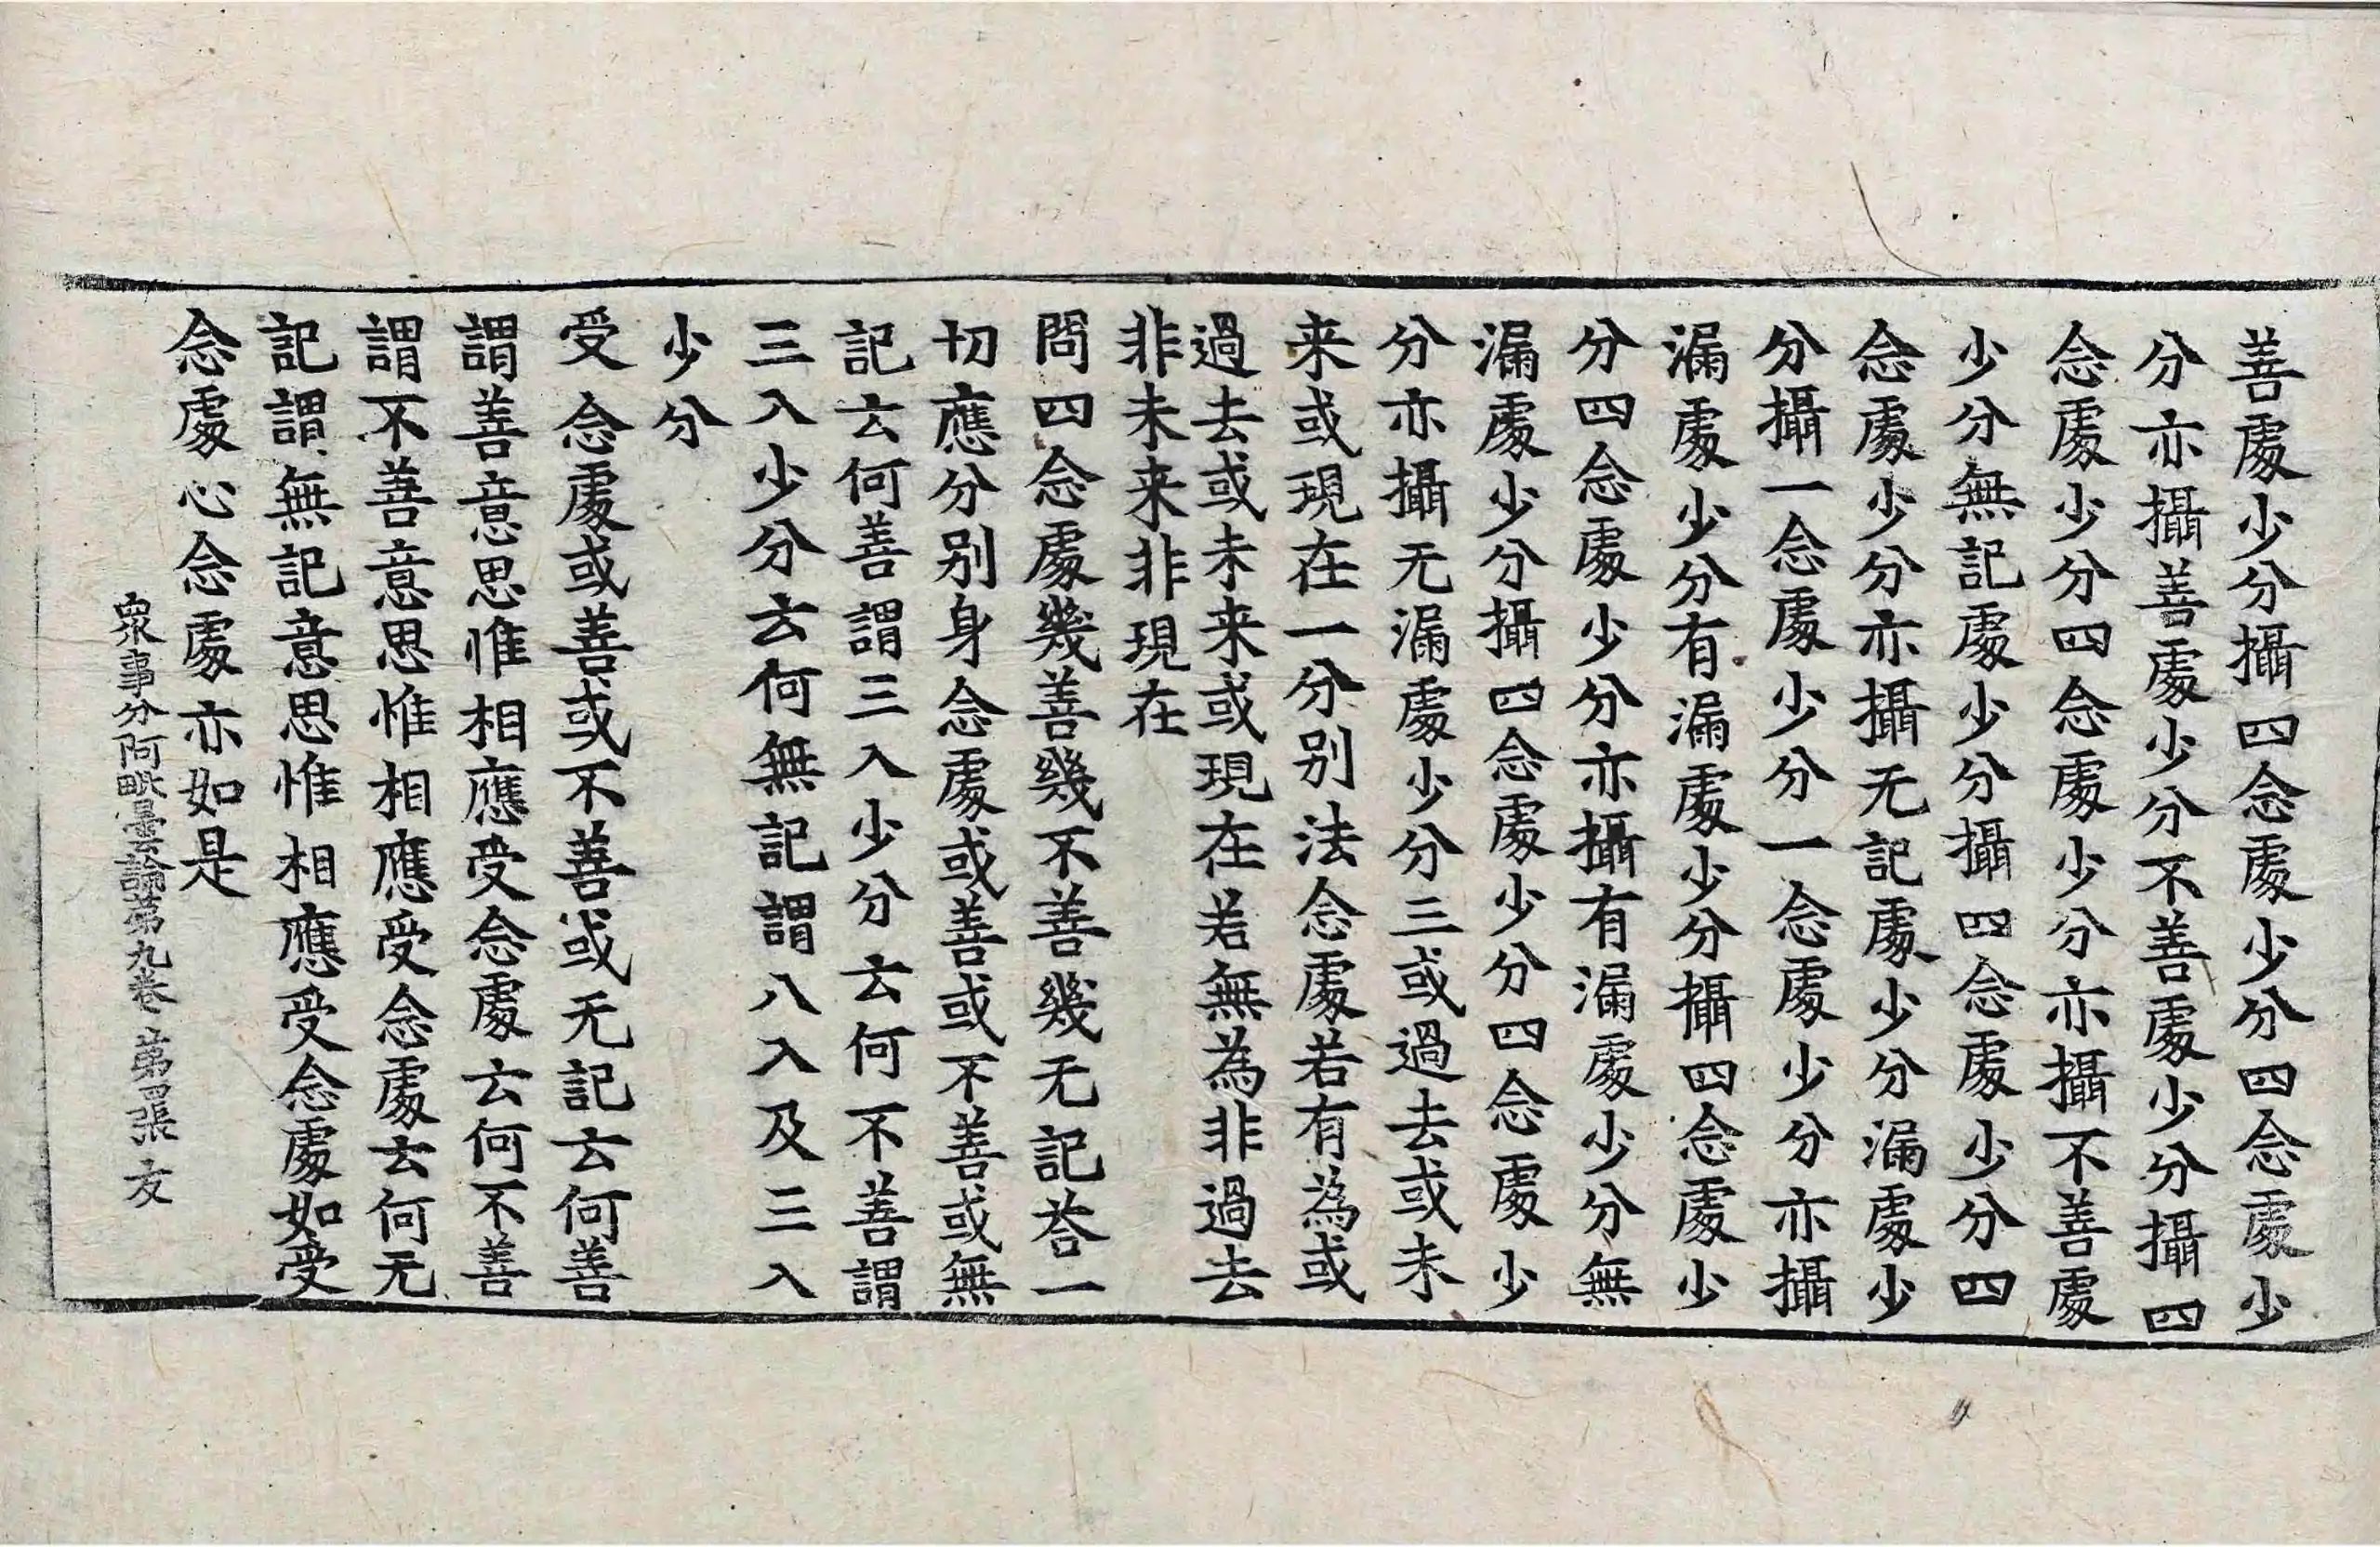 善處少分攝四念處少分四念處少
分亦攝善處少分不善處少分攝四
念處少分四念處少分亦攝不善處
少分無記處少分攝四念處少分四
念處少分亦攝无記處少分漏處少
分攝一念處少分一念處少分亦攝
漏處少分有漏處少分攝四念處少
分四念處少分亦攝有漏處少分無
漏處少分攝四念處少分四念處少
分亦攝无漏處少分三或過去或未
来或現在一分别法念處若有為或
過去或未来或現在若無為非過去
非未来非現在
問四念處幾善幾不善幾无記荅一
切應分别身念處或善或不善或無
記云何善謂三入少分云何不善謂
三入少分云何無記謂八入及三入
少分
受念處或善或不善或无記云何善
謂善意思惟相應受念處云何不善
謂不善意思惟相應受念處云何无
記謂無記意思惟相應受念處如受
念處心念處亦如是
衆事分阿毗曇論第九卷 第四張 友